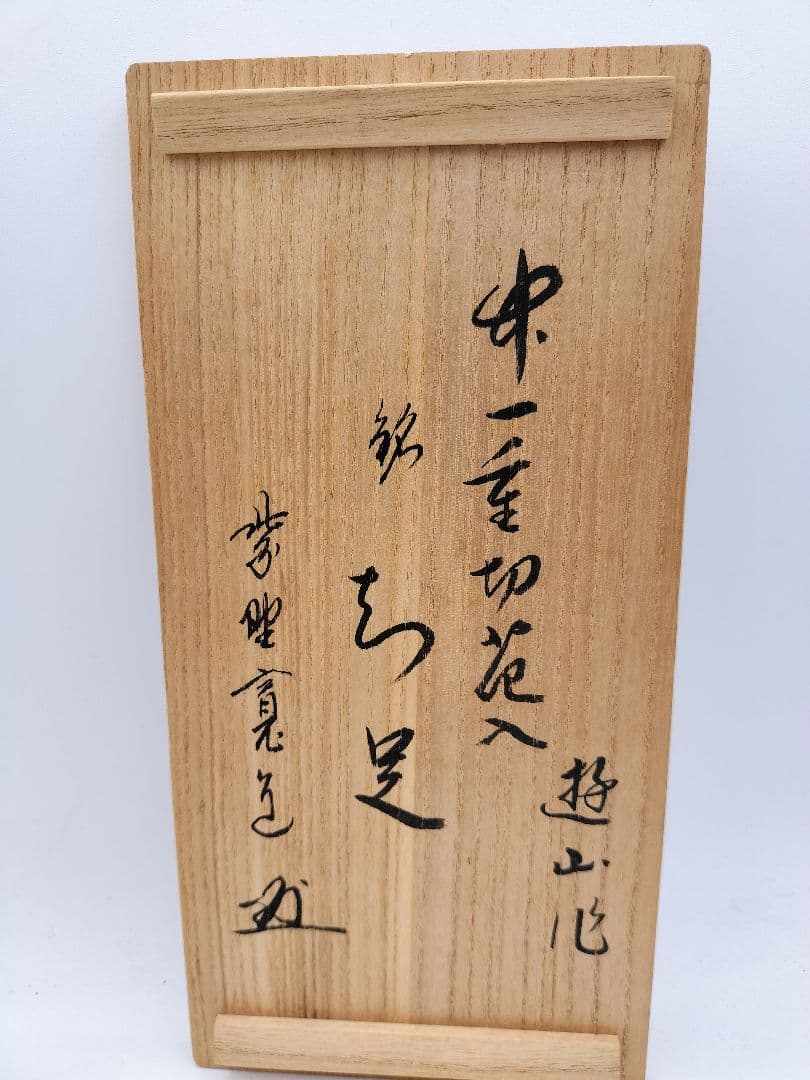 一重切花入
遊山作
銘
知足
紫野寛道